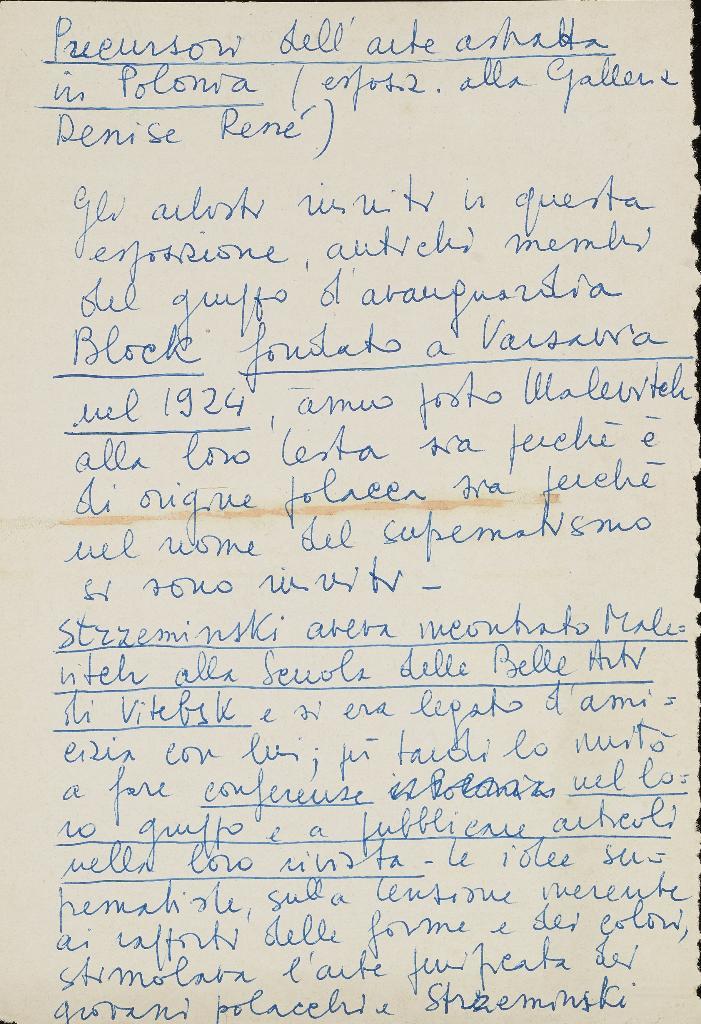 Precursori dell'arte astratta
in Polonia (esposiz. alla Galleria
Denise René)
Gli artisti riuniti in questa
esposizione, antichi membri
del gruppo d'avanguardia
Block fondato a Varsavia
nel 1924, anno posto Malevitch
alla loro testa sia perchè è
di origine polacca sia perchè
nel nome del suprematismo
si sono riuniti -
Strzeminski aveva incontrato Male=
vitch alla Scuola delle Belle Arti
di Vitebsk e si era legato d'ami=
cizia con lui; più tardi lo invitò
a fare conferenze nel lo=
ro gruppo e a pubblicare articoli
nella loro rivista - le idee su=
prematiste, sulla tensione inerente
ai rapporti delle forme e dei colori,
stimolava l'arte purificata dei
giovani polacchi e Strzeminski